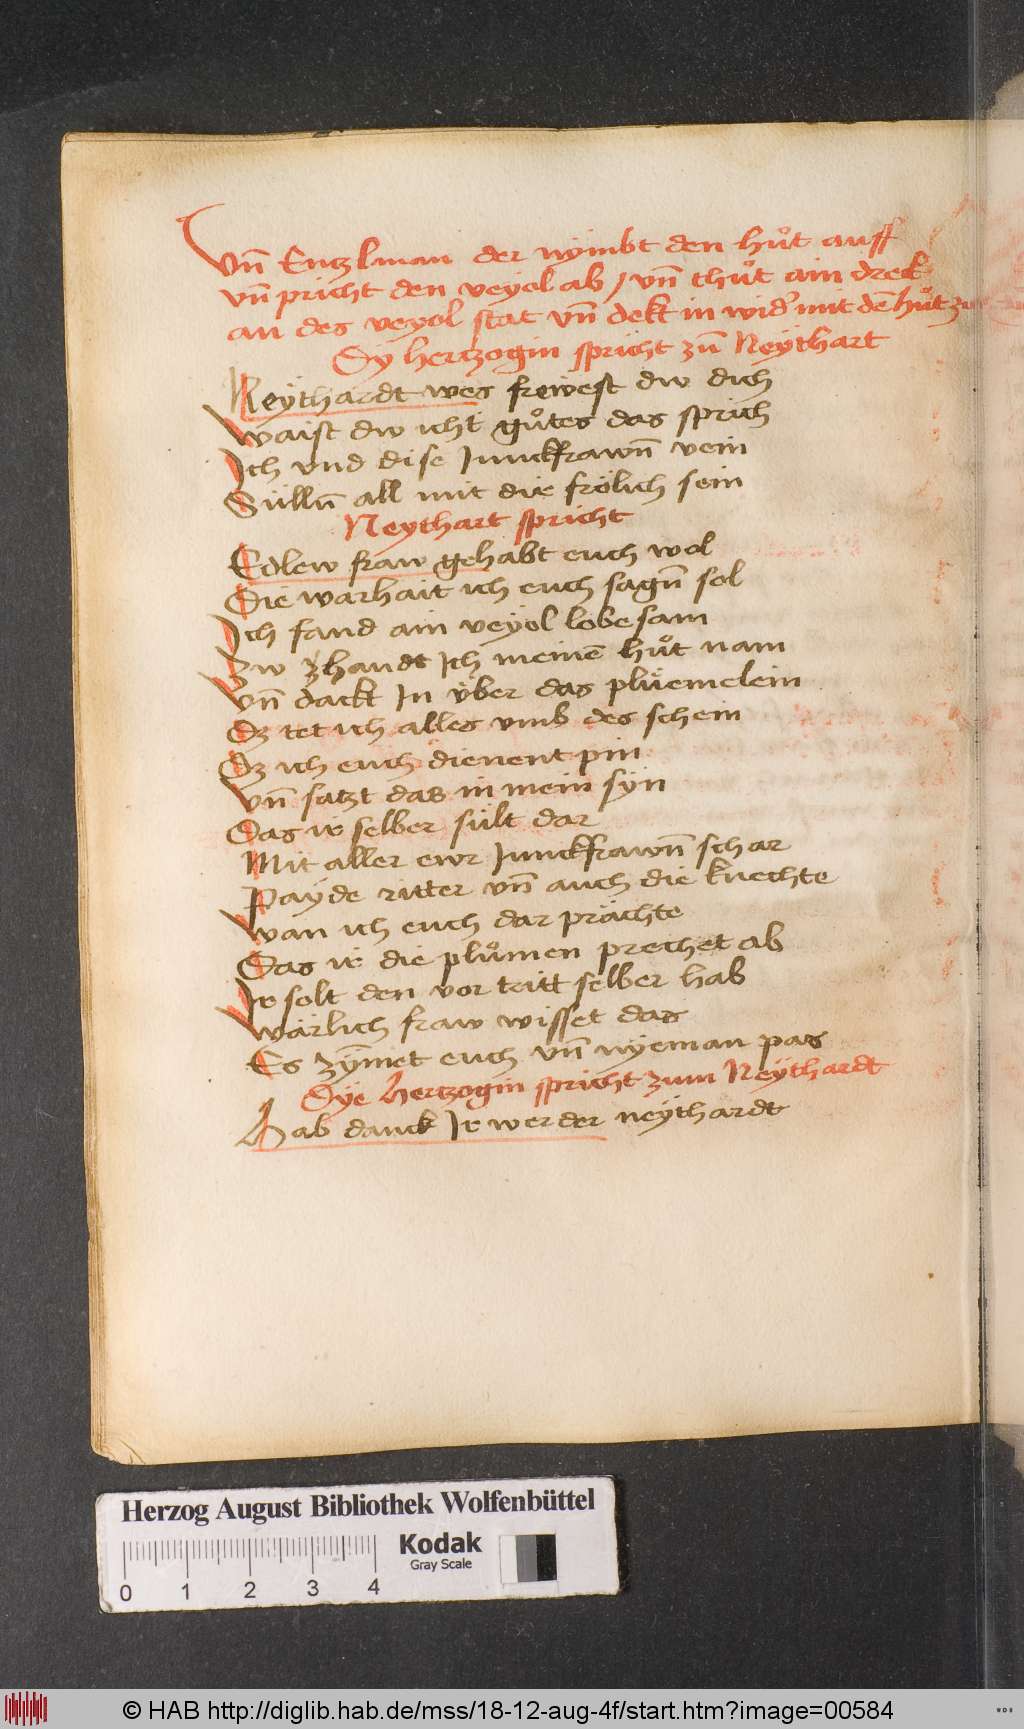 Vn̄ Entzlman der nÿmbt den hůt auff
vn̄ pricht den veyol ab / vn̄ thůt ain dreck
an des veyol stat vn̄ dekt in wid᷑ mit dē hůt zu
Dy hertzogin spricht zū Neÿthart
Neÿthardt wes frewest dw dich
Waist dw icht gůtes das sprich
Ich vnd dise Junckfrawn̄ vein
Sülln̄ all mit dir frölich sein
Neythart spricht
Edlew fraw gehabt euch wol
Die warhait ich euch sagn̄ sol
Ich fand ain veyol lobesam
Zw zhandt Ich meinē hůt nam
Vn̄ dackt In vber das plüemelein
Dz tet ich alles vmb des schein
Dz ich euch dienent pin
Vn̄ satzt das in mein syn
Das ir selber sült dar
Mit aller ewr Junckfrawn̄ schar
Payde ritter vn̄ auch die knechte
Wan ich euch dar prächte
Das ir die plůmen prechet ab
Ir solt den vor tritt selber hab
Wärlich fraw wisset das
Es zÿmet euch vn̄ nÿeman pas
Dÿe hertzogin spricht zum Neÿthardt
Hab danck Ir werder neÿthardt
Herzog August Bibliothek Wolfenbüttel
Kodak
Gray Scale
0 1 2 3 4
© HAB http://diglib.hab.de/mss/18-12-aug-4f/start.htm?image=00584